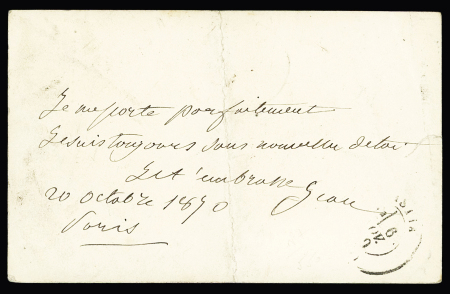 Je me porte parfaitement
Je suis toujours sans nouvelles de toi
Je t'embrasse
Jean
20 octobre 1870
Paris